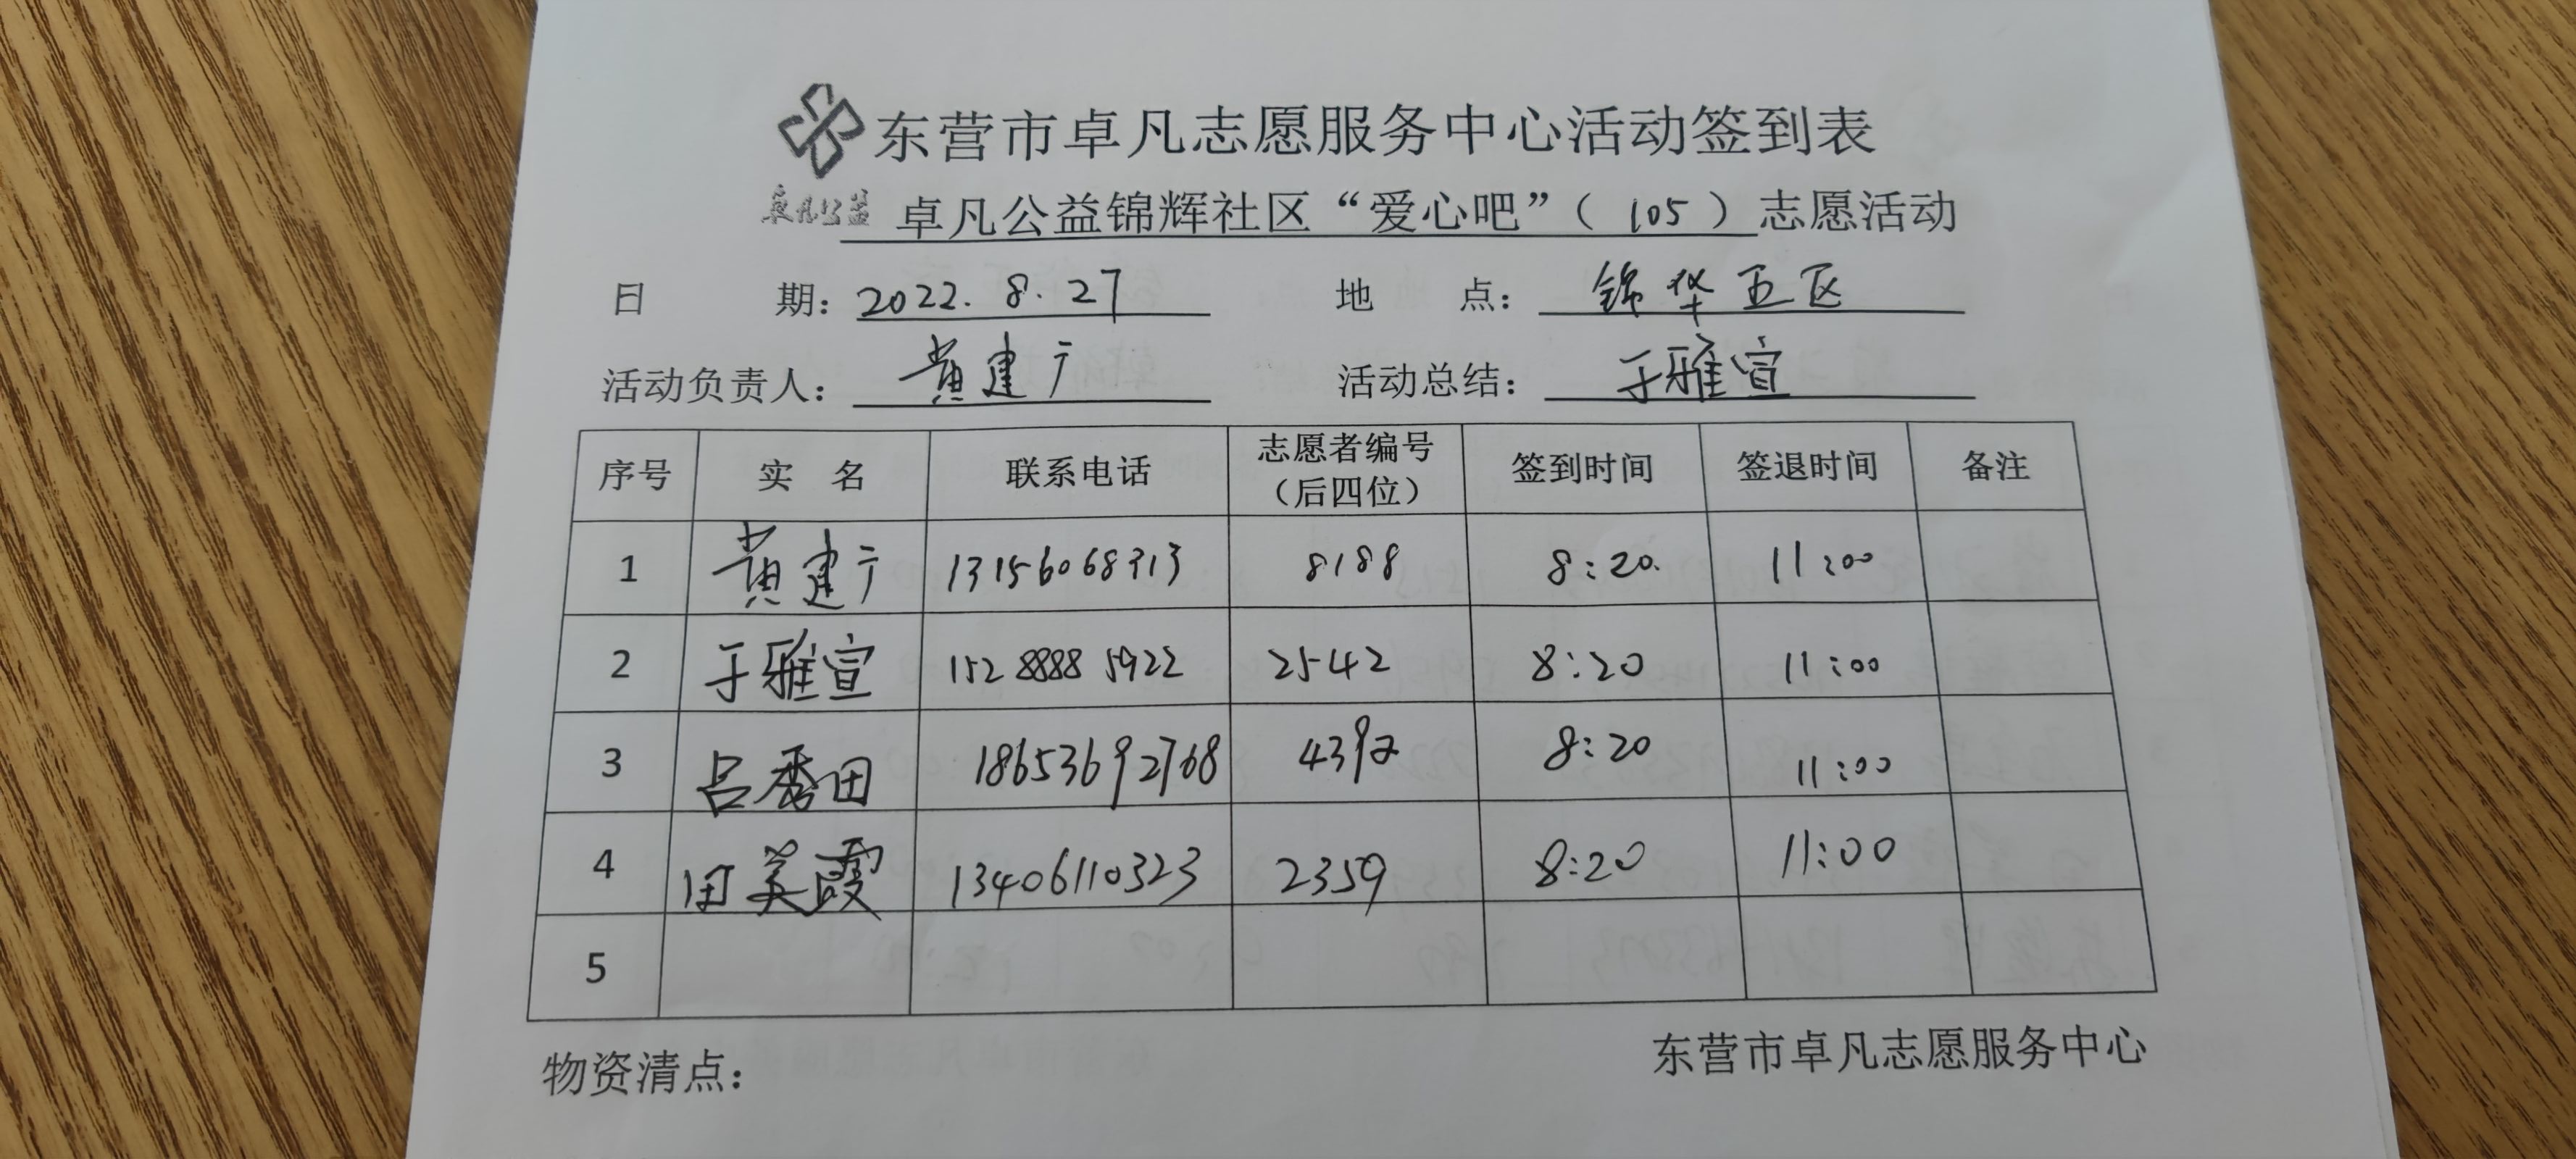 东营市卓凡志愿服务中心活动签到表
卓凡公益 卓凡公益锦辉社区“爱心吧”（105）志愿活动
日 期：2022.8.27 地 点：锦华五区
活动负责人：黄建广 活动总结：于雅宣
序号 实 名 联系电话 志愿者编号（后四位） 签到时间 签退时间 备注
1 黄建广 13156068313 8188 8:20. 11:00
2 于雅宣 152 8888 5922 2542 8:20 11:00
3 吕秀田 18653692768 4392 8:20 11:00
4 田美霞 13406110323 2359 8:20 11:00
5
物资清点： 东营市卓凡志愿服务中心